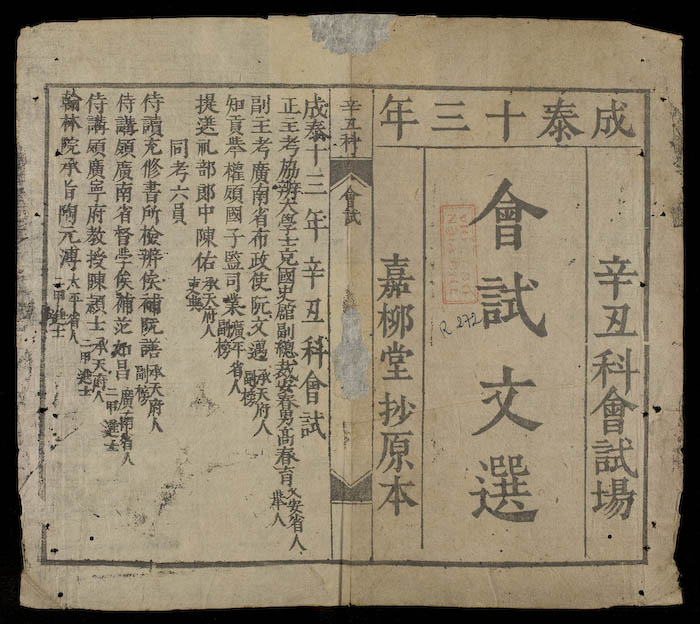 成泰十三年
辛丑科會試場
會試文選
嘉柳堂抄原本
R 272
辛丑科
會試
成泰十三年辛丑科會試
正主考協辨大學士充國史館副總裁安春男高春育乂安省人舉人
副主考廣南省布政使阮文邁承天府人副榜
知貢舉權領國子監司業廣平省人副榜
提選礼部郎中陳佑承天府人
同考六員
侍讀充修書所檢辨侯補阮承天府人副榜
侍講領廣南省督學侯補范如昌廣南省人二甲進士
侍講領廣寧府教授陳頴士承天府人二甲進士
翰林院承旨陶元溥太平省人二甲進士